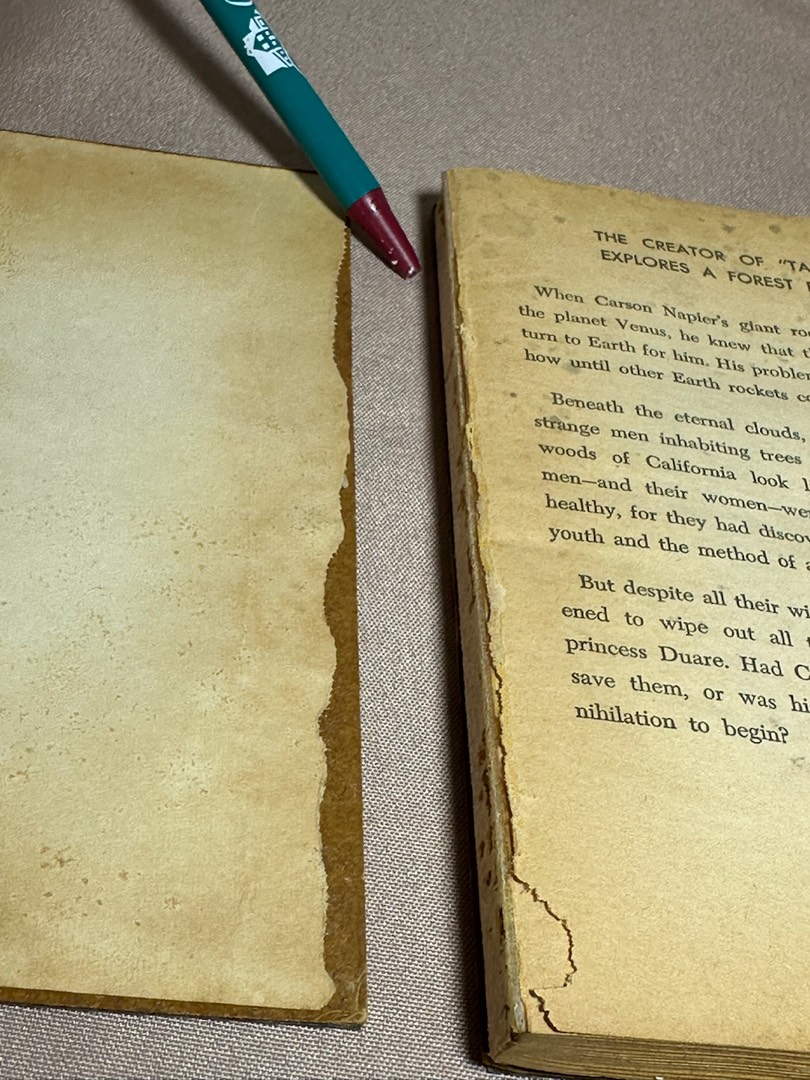 THE CREATOR OF "TA
EXPLORES A FOREST
When Carson Napier's giant ro
the planet Venus, he knew that t
turn to Earth for him. His proble
how until other Earth rockets c
Beneath the eternal clouds,
strange men inhabiting trees
woods of California look l
men—and their women—we
healthy, for they had disco
youth and the method of a
But despite all their wi
ened to wipe out all t
princess Duare. Had C
save them, or was hi
nihilation to begin?